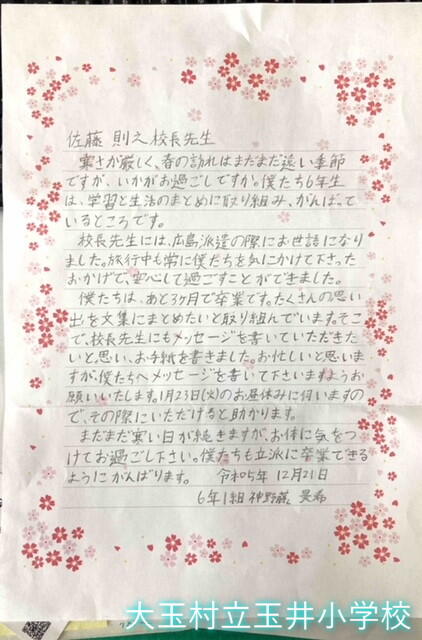 佐藤 則之校長先生
寒さが厳しく、春の訪れはまだまだ遠い季節
ですが、いかがお過ごしですか。僕たち6年生
は、学習と生活のまとめに取り組み、がんばって
いるところです。
校長先生には、広島派遣の際にお世話になり
ました。旅行中も常に僕たちを気にかけて下さった
おかげで、安心して過ごすことができました。
僕たちは、あと3ヶ月で卒業です。たくさんの思い
出を文集にまとめたいと取り組んでいます。そこ
で、校長先生にもメッセージを書いていただきた
いと思い、お手紙を書きました。お忙しいと思いま
すが、僕たちへメッセージを書いて下さいますようお
願いいたします。1月23日(火)のお昼休みに伺いますの
で、その際にいただけると助かります。
まだまだ寒い日が続きますが、お体に気をつ
けてお過ごし下さい。僕たちも立派に卒業できる
ようにがんばります。 令和5年 12月21日
6年1組 神野藤
大玉村立玉井小学校